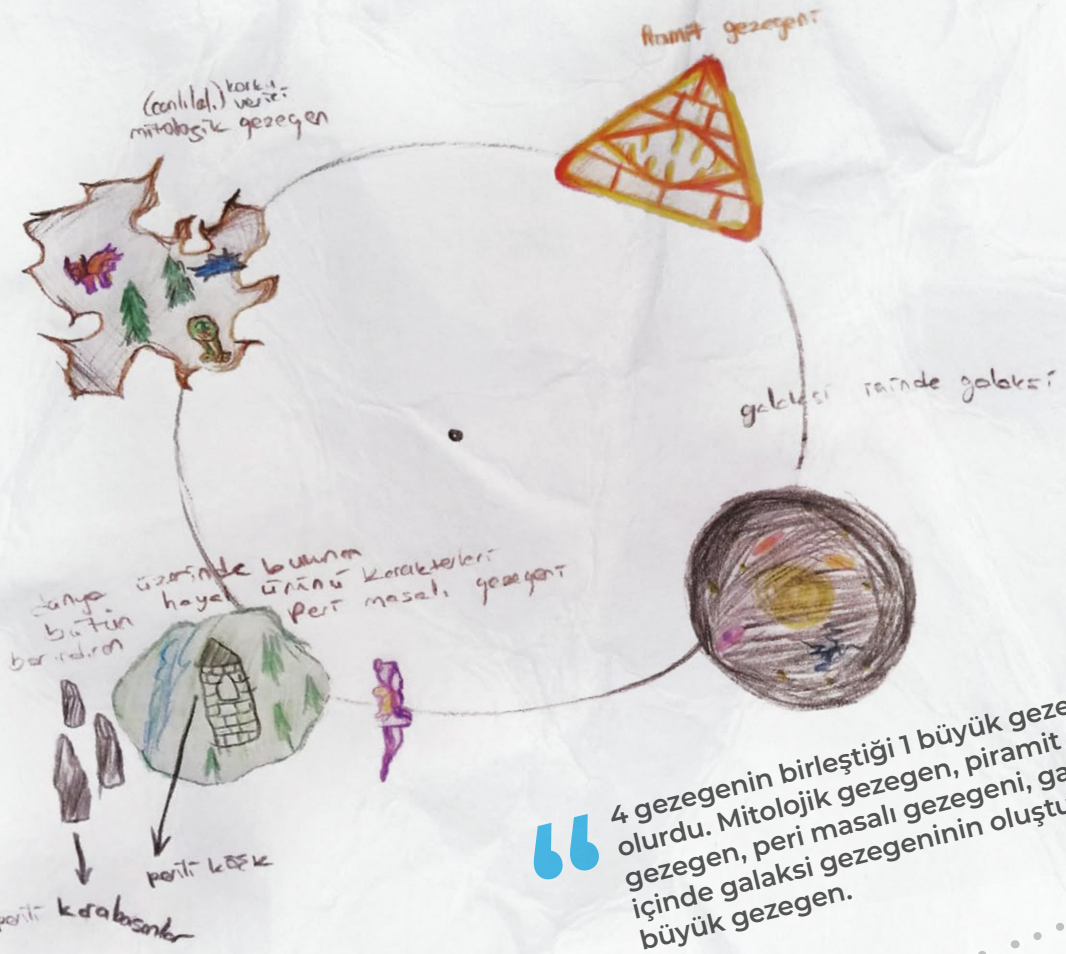 gezegeni
(canlılal.) korku
verici
mitolojik gezegen
galaksi içinde galaksi
dünya üzerinde bulunan
bütün hayal ürünü karakterleri
barındıran peri masalı gezegeni
perili köşk
perili karabasanlar
4 gezegenin birleştiği 1 büyük geze
olurdu. Mitolojik gezegen, piramit
gezegen, peri masalı gezegeni, ga
içinde galaksi gezegeninin oluştu
büyük gezegen.